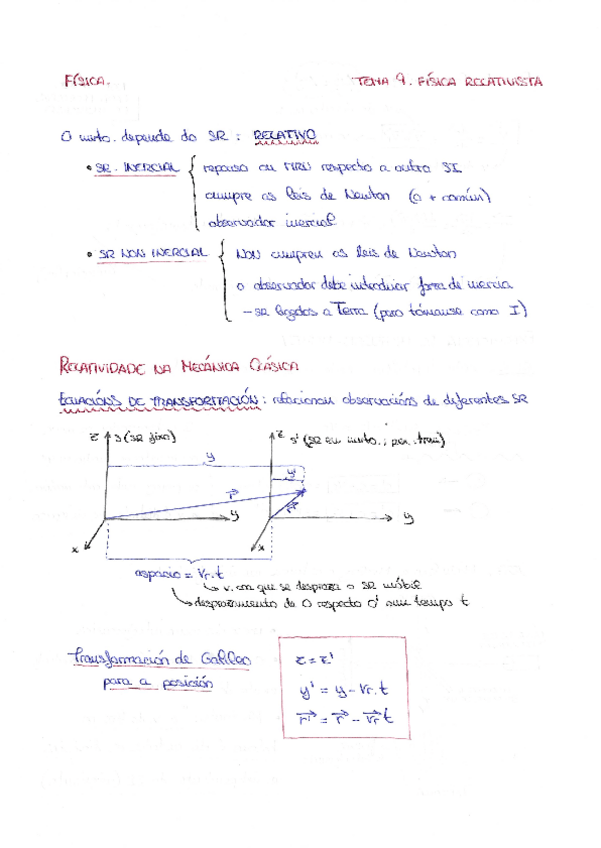 FÍSICA. TEMA 9. FÍSICA RELATIVISTA
O mvto. depende do SR : RELATIVO
• SR. INERCIAL { repouso ou MRU respecto a outro SI
cumpre as leis de Newton (o + común)
observador inercial
• SR NON INERCIAL { NON cumpren as leis de Newton
o observador debe introducir forza de inercia
- SR ligados a Terra (pero tómanse como I)
RELATIVIDADE NA MECÁNICA CLÁSICA
ECUACIÓNS DE TRANSFORMACIÓN : relacionan observacións de diferentes SR
z S (SR fixo) z S' (SR en mvto. ; per. tren)
y
y'
r⃗ r⃗'
y y
x x
espacio = Vr.t
↳ v. con que se despraza o SR móbil
↳ desprazamento de O respecto O' nun tempo t
Transformación de Galileo
para a posición
z = z'
y' = y - Vr.t
r⃗' = r⃗ - V⃗r t